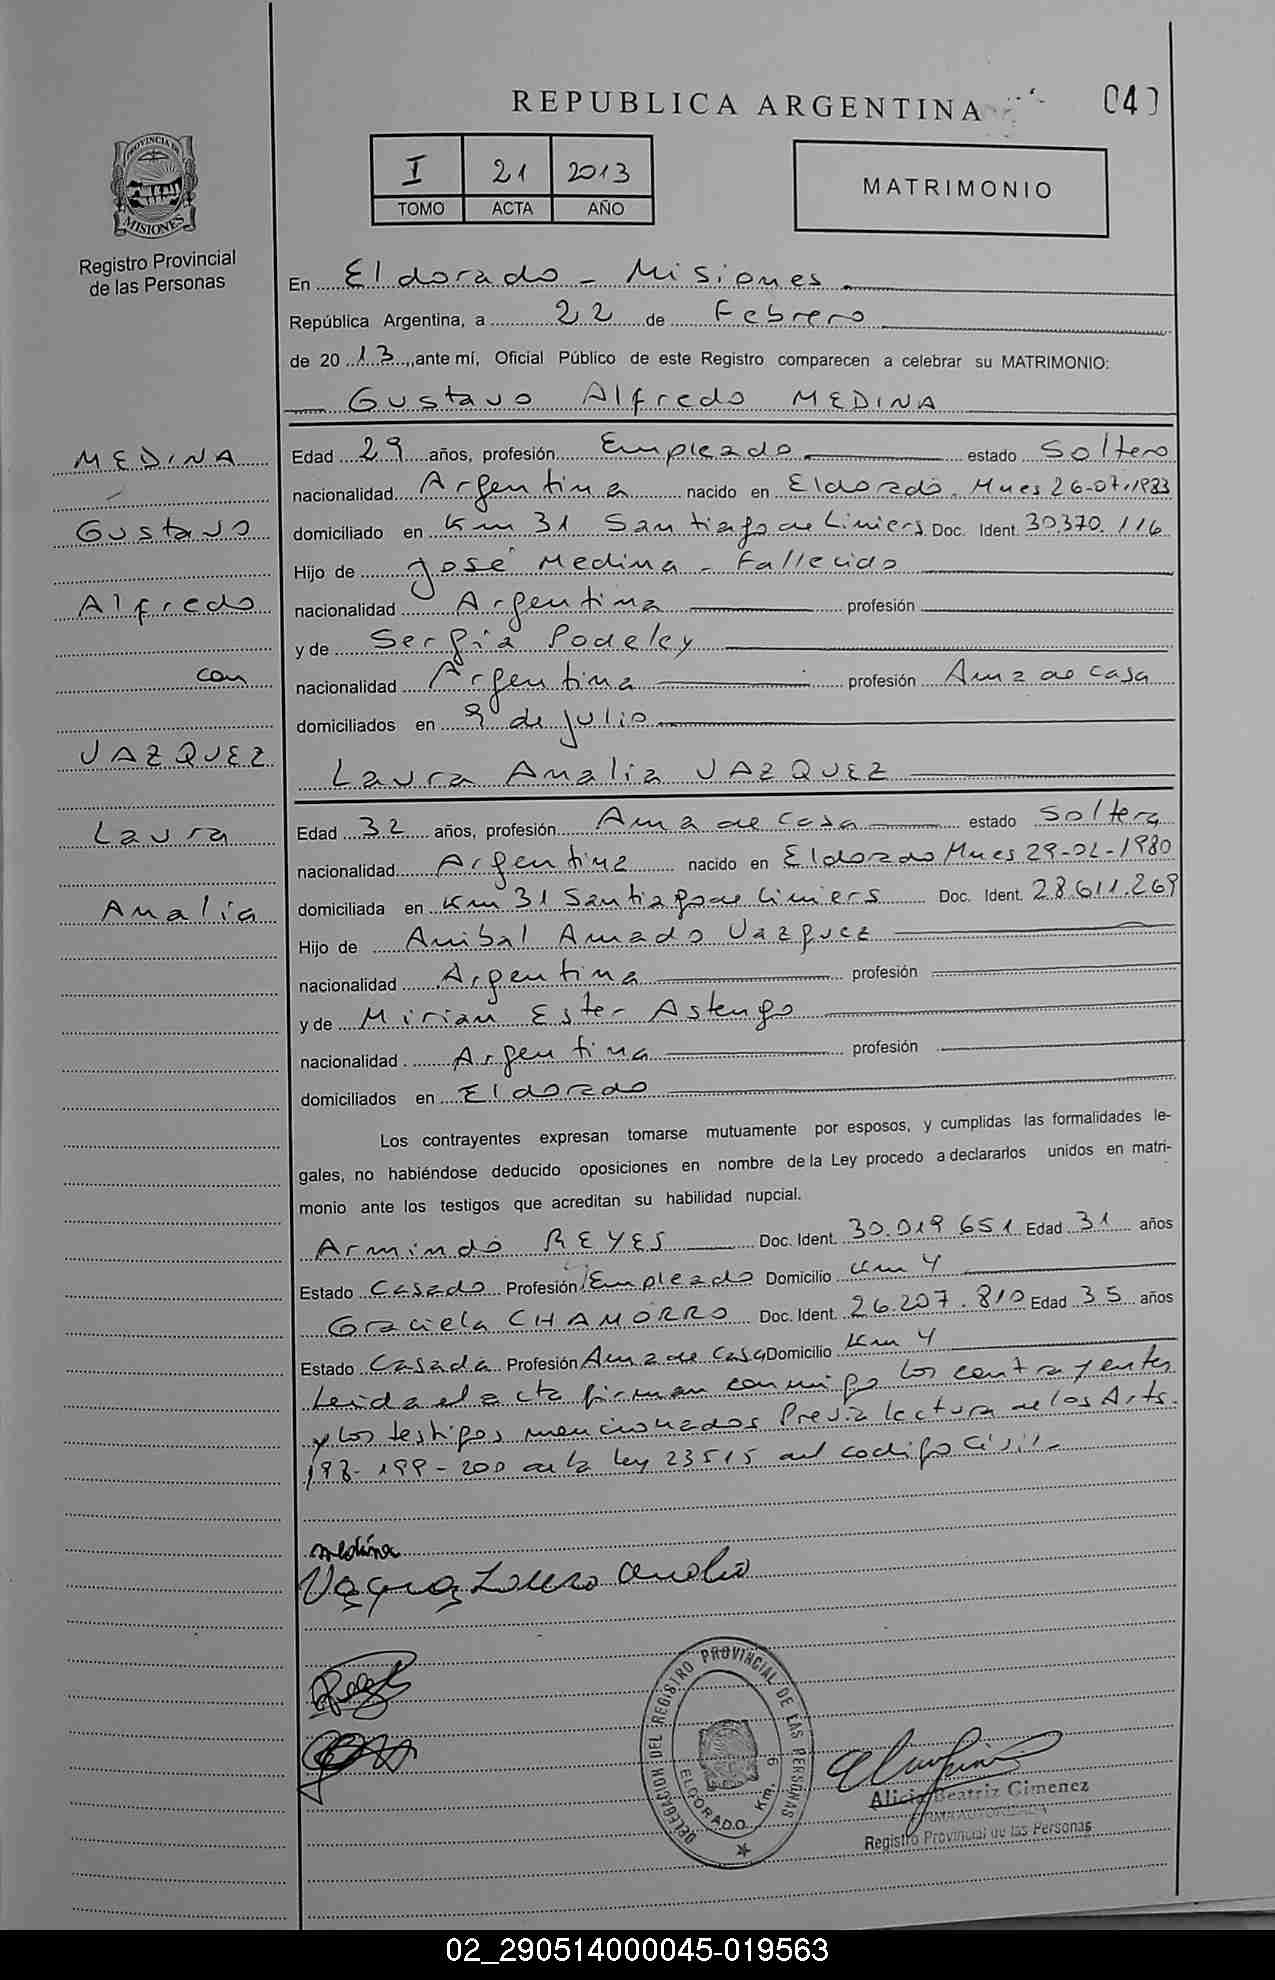 REPUBLICA ARGENTINA
I 21 2013
TOMO ACTA AÑO
MATRIMONIO
PROVINCIA DE MISIONES
Registro Provincial
de las Personas
En Eldorado - Misiones
República Argentina, a 22 de Febrero
de 2013, ante mí, Oficial Público de este Registro comparecen a celebrar su MATRIMONIO:
Gustavo Alfredo MEDINA
MEDINA
Gustavo
Alfredo
con
VAZQUEZ
Laura
Analia
Edad 29 años, profesión Empleado estado Soltero
nacionalidad Argentina nacido en Eldorado. Mnes 26-07-1983
domiciliado en Km 31 Santiago de Liniers Doc. Ident. 30.370.116
Hijo de José Medina - Fallecido
nacionalidad Argentina profesión
y de Sergia Podeley
nacionalidad Argentina profesión Ama de casa
domiciliados en 9 de julio
Laura Analia VAZQUEZ
Edad 32 años, profesión Ama de Casa estado Soltera
nacionalidad Argentina nacido en Eldorado Mnes 29-02-1980
domiciliada en Km 31 Santiago de Liniers Doc. Ident. 28.611.269
Hijo de Anibal Amado Vazquez
nacionalidad Argentina profesión
y de Mirian Ester Astengo
nacionalidad Argentina profesión
domiciliados en Eldorado
Los contrayentes expresan tomarse mutuamente por esposos, y cumplidas las formalidades le-
gales, no habiéndose deducido oposiciones en nombre de la Ley procedo a declararlos unidos en matri-
monio ante los testigos que acreditan su habilidad nupcial.
Armindo REYES Doc. Ident. 30.019.651 Edad 31 años
Estado Casado Profesión Empleado Domicilio Km 4
Graciela CHAMORRO Doc. Ident. 26.207.810 Edad 35 años
Estado Casada Profesión Ama de Casa Domicilio Km 4
Leida el acta firman conmigo los contrayentes
y los testigos mencionados Previa lectura de los Arts.
198-199-200 de la ley 23515 del codigo Civil-
medina
Vazquez Laura Analia
DELEGACION DEL REGISTRO PROVINCIAL DE LAS PERSONAS
ELDORADO Km. 9
Alicia Beatriz Gimenez
FIRMA AUTORIZADA
Registro Provincial de las Personas
02_290514000045-019563